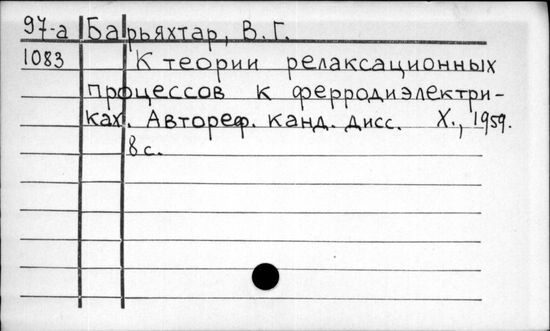 97-а Барьяхтар, В. Г.
1083 К теории релаксационных
процессов к ферродиэлектри-
ках. Автореф. канд. дисс. Х., 1959.
8 с.